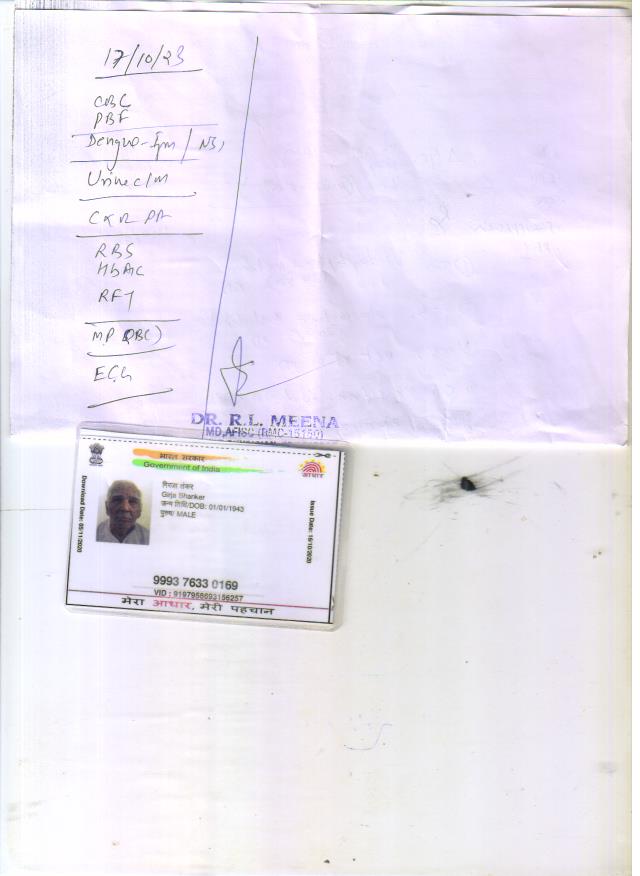 17/10/23
CBC
PBF
Dengue-Igm / NS1
Urine c/m
CXR PA
RBS
HbA1c
RFT
M.P (QBC)
ECG
DR. R.L. MEENA
MD, AFISC (RMC-15159)
भारत सरकार
Government of India
आधार
Download Date: 05/11/2020
गिरजा शंकर
Girja Shanker
जन्म तिथि/DOB: 01/01/1943
पुरुष/ MALE
Issue Date: 16/10/2020
9993 7633 0169
VID : 9197958693156257
मेरा आधार, मेरी पहचान